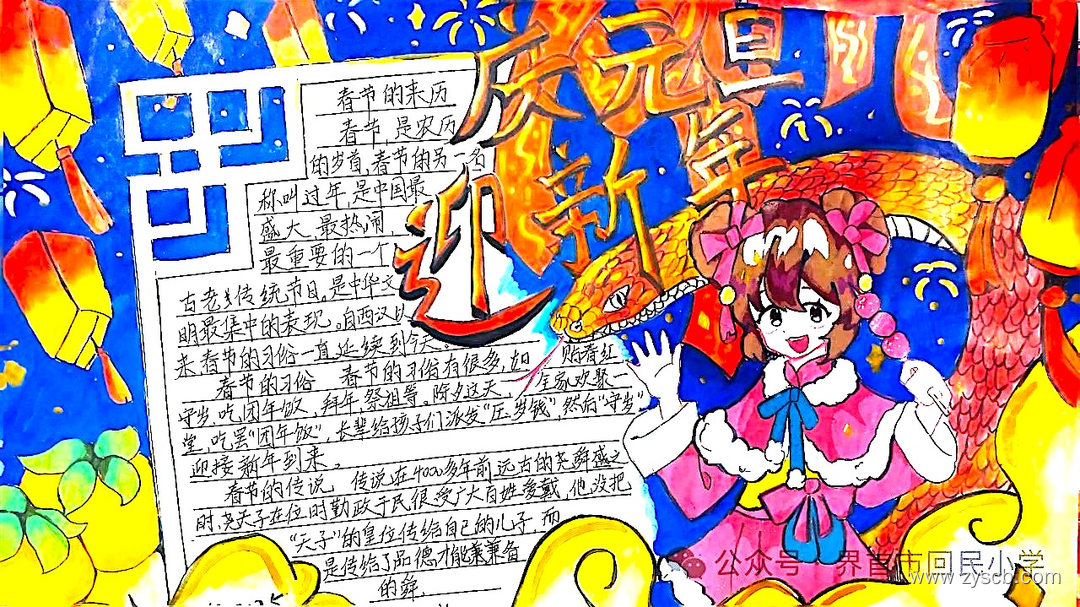 庆元旦
迎新年
春节的来历
春节，是农历
的岁首，春节的另一名
称叫过年，是中国最
盛大、最热闹，
最重要的一个
古老传统节日，是中华文
明最集中的表现。自西汉以
来春节的习俗一直延续到今天。
春节的习俗 春节的习俗有很多，如 贴春红
守岁、吃团年饭，拜年、祭祖等。除夕这天，全家欢聚一
堂，吃罢“团年饭”，长辈给孩子们派发“压岁钱”，然后“守岁”
迎接新年到来。
春节的传说 传说，在4000多年前远古的尧舜盛之
时，尧天子在位时勤政于民，很受广大百姓爱戴，他没把
“天子”的皇位传给自己的儿子，而
是传给了品德才能兼兼备
的舜。
公众号·界首市回民小学
www.zyscb.com